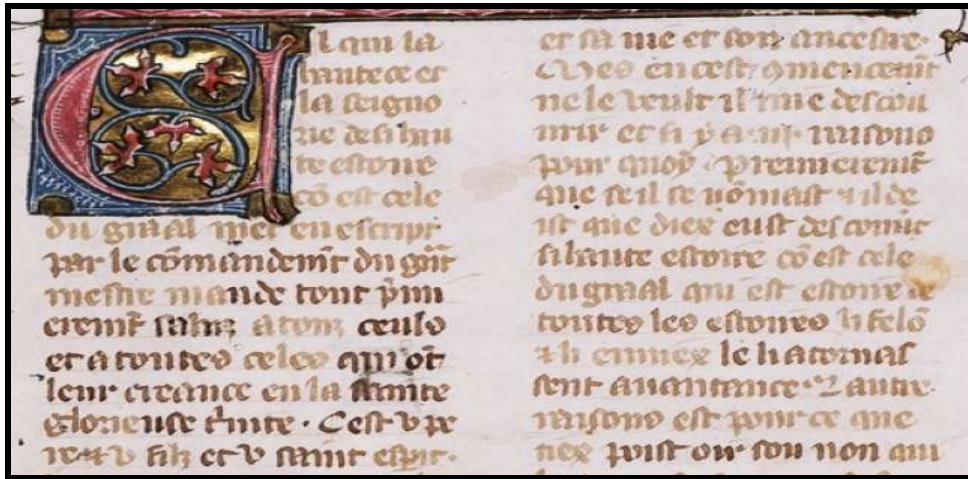 Cil qui la
hautece et
la seigno
rie de si hau
te estoire
cō est cele
du graal met en escript
par le cōmandemt du gñt
mestre mande tout pͥm
eremt saluz a touz ceuls
et a toutes celes qui ōt
leur creance en la sainte
glorieuse tͥnite. Cest v pe
re et v filz et v saint esperit.
et sa vie et son ancestre.
Mes en cest ꝯmencemt
ne le veult il mie descou
urir et si y a .iii. raisons
pour quoy. Premieremt
que se il se nōmast et il de
ist que diex eust descouut
si haute estoire cō est cele
du graal qui est estoire de
toutes les estoires li felō
et li enuiex le li atornas
sent a uantance. L autre
raisons est pour ce que
tiex poist oir son non qui